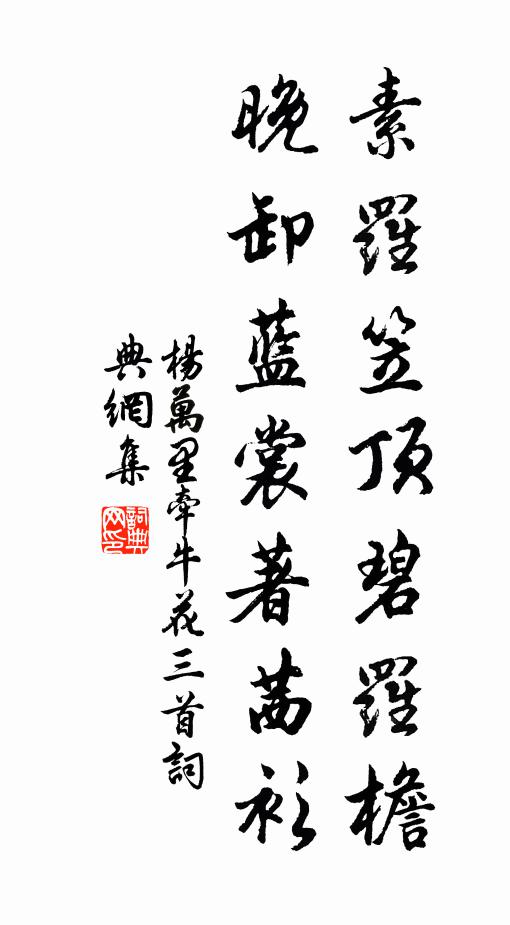 素羅笠頂碧羅檐
晚卸藍裳著茜衫
楊萬里牽牛花三首詞
典網集
詞典網印